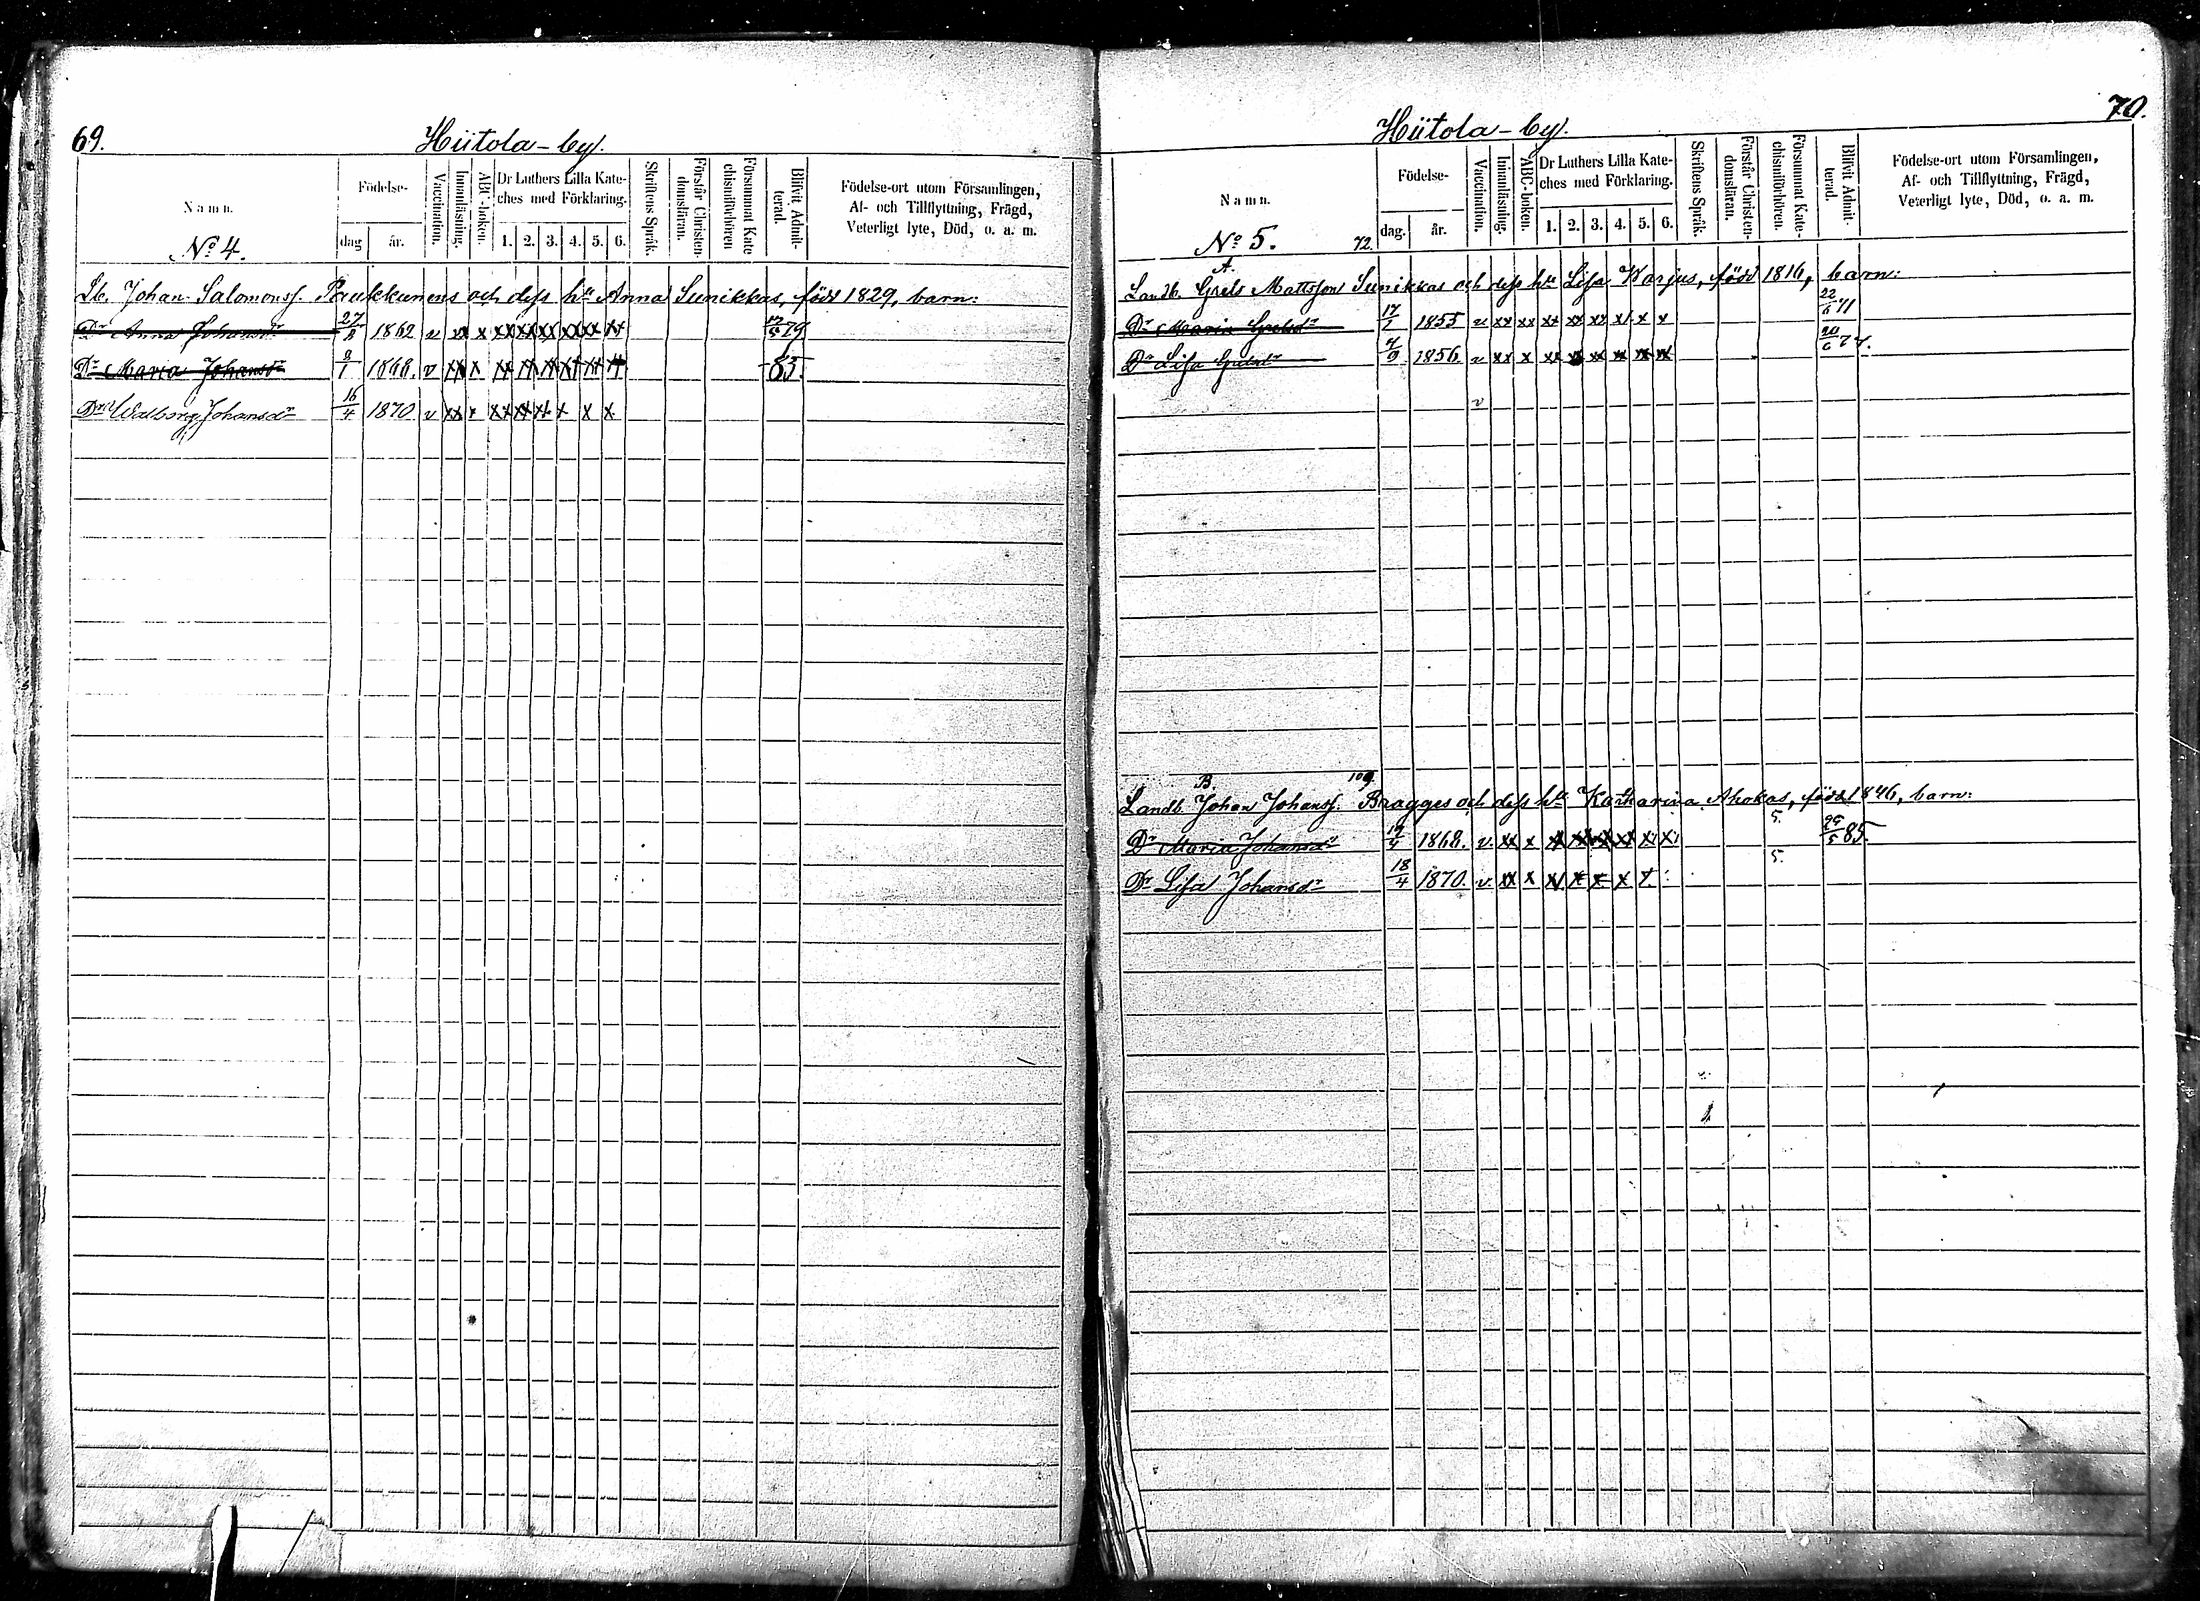 69.
Hiitola-by.
Namn.
Födelse-
dag
år.
Vaccination.
Innanläsning.
ABC-boken.
Dr Luthers Lilla Kate-
ches med Förklaring.
1. 2. 3. 4. 5. 6.
Skriftens Språk.
Förstår Christen-
domsläran.
Försummat Kate
chismiförhören
Blifvit Admit-
terad.
Födelse-ort utom Församlingen,
Af- och Tillflyttning, Frägd,
Veterligt lyte, Död, o. a. m.
No 4.
Lb. Johan Salomonss. Paukkunens och dess hu Anna Sunikkas, född 1829, barn:
Dr Anna Johansdr 27/8 1862 v xx x xx xx xx xx xx xx 79
Dr Maria Johansdr 1868. v xx x xx xx xx xx xx xx 85.
Dr Walborg Johansdr 16/4 1870 v xx x xx xx xx x x x
70.
Hiitola-by.
Namn.
Födelse-
dag.
år.
Vaccination.
Innanläsning.
ABC-boken.
Dr Luthers Lilla Kate-
ches med Förklaring.
1. 2. 3. 4. 5. 6.
Skriftens Språk.
Förstår Christen-
domsläran.
Försummat Kate-
chismiförhören.
Blifvit Admit-
terad.
Födelse-ort utom Församlingen,
Af- och Tillflyttning, Frägd,
Veterligt lyte, Död, o. a. m.
No 5. 72.
A.
Landb. Grels Mattsson Sunikkas och dess hu Lisa Karjus, född 1816, barn:
Dr Maria Grelsdr 17/1 1855 v xx xx xx xx xx x x x 22/6 71
Dr Lisa Grelsdr 1856. v xx x xx xx xx xx xx
v
B. 109.
Landb. Johan Johanss. Bragges och dess hu Katharina Ahokas, född 1846, barn:
Dr Maria Johansdr 1868. v. xx x xx xx xx xx x x 5. 85.
Dr Lisa Johansdr 18/4 1870. v. xx x xx x x x x 5.